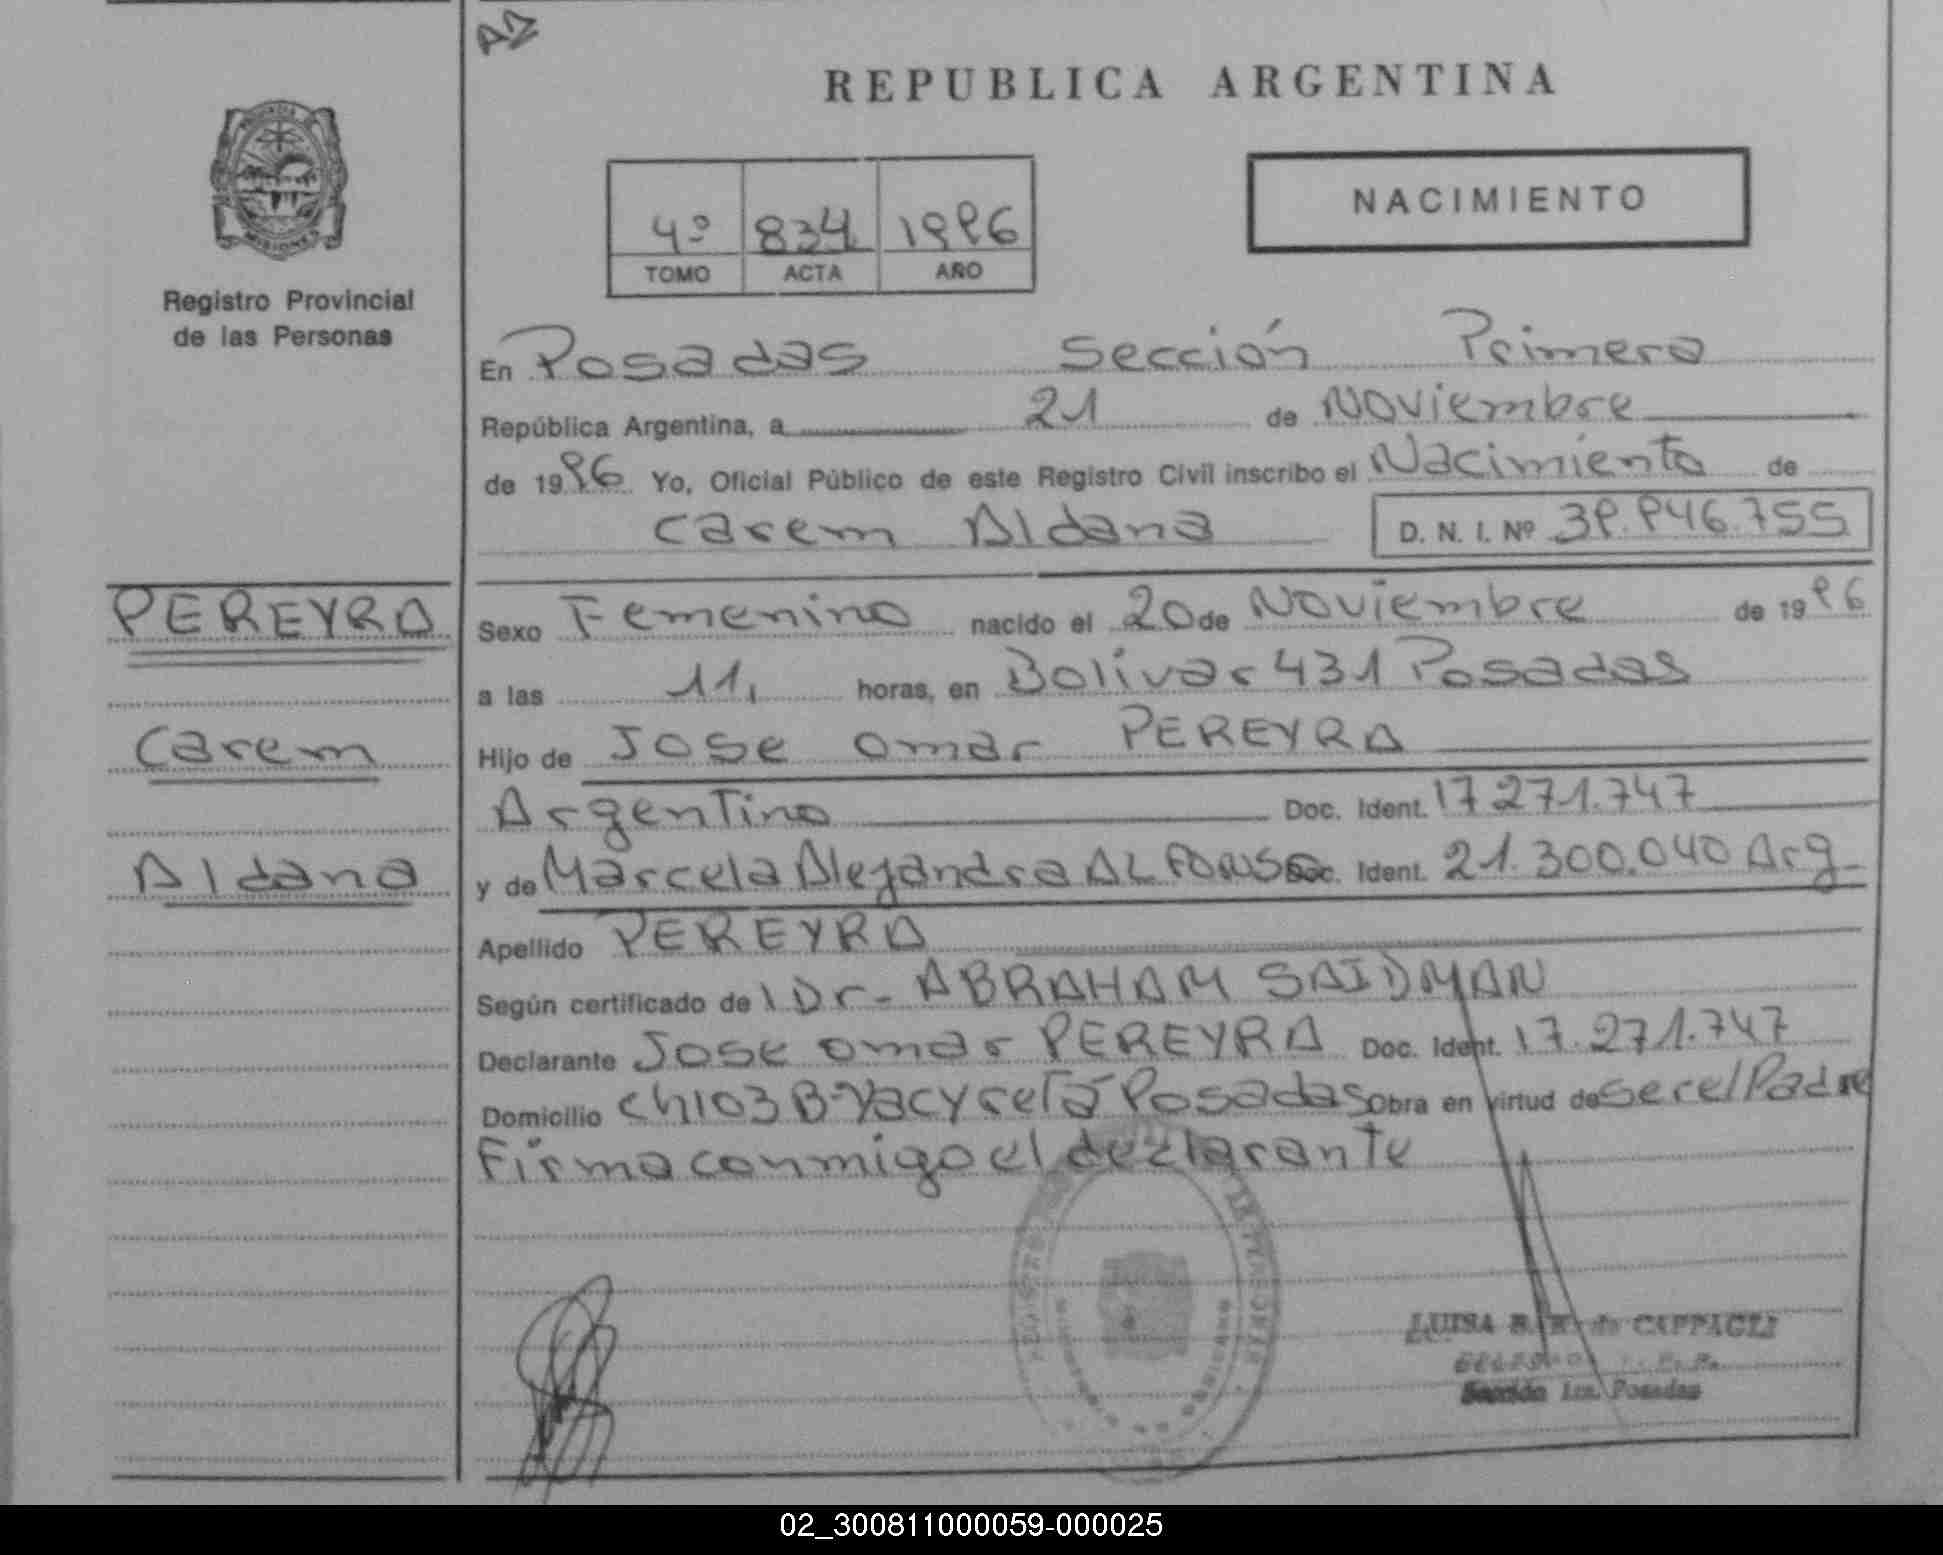 AZ
REPUBLICA ARGENTINA
NACIMIENTO
4º 834 1996
TOMO ACTA AÑO
MISIONES
Registro Provincial
de las Personas
En Posadas Sección Primera
República Argentina, a 21 de Noviembre
de 1996 Yo, Oficial Público de este Registro Civil inscribo el Nacimiento de
Carem Aldana D. N. I. Nº 39.946.755
PEREYRA
Carem
Aldana
Sexo Femenino nacido el 20 de Noviembre de 1996
a las 11, horas, en Bolivar 431 Posadas
Hijo de Jose Omar PEREYRA
Argentino Doc. Ident. 17.271.747
y de Marcela Alejandra ALFONSO Doc. Ident. 21.300.040 Arg-
Apellido PEREYRA
Según certificado de l Dr- ABRAHAM SAIDMAN
Declarante Jose Omar PEREYRA Doc. Ident. 17.271.747
Domicilio Ch103 B-Yacyretá-Posadas Obra en virtud de ser el Padre
Firma conmigo el declarante
LUISA de CAPPAGLI
Sección 1ra. Posadas
02_300811000059-000025